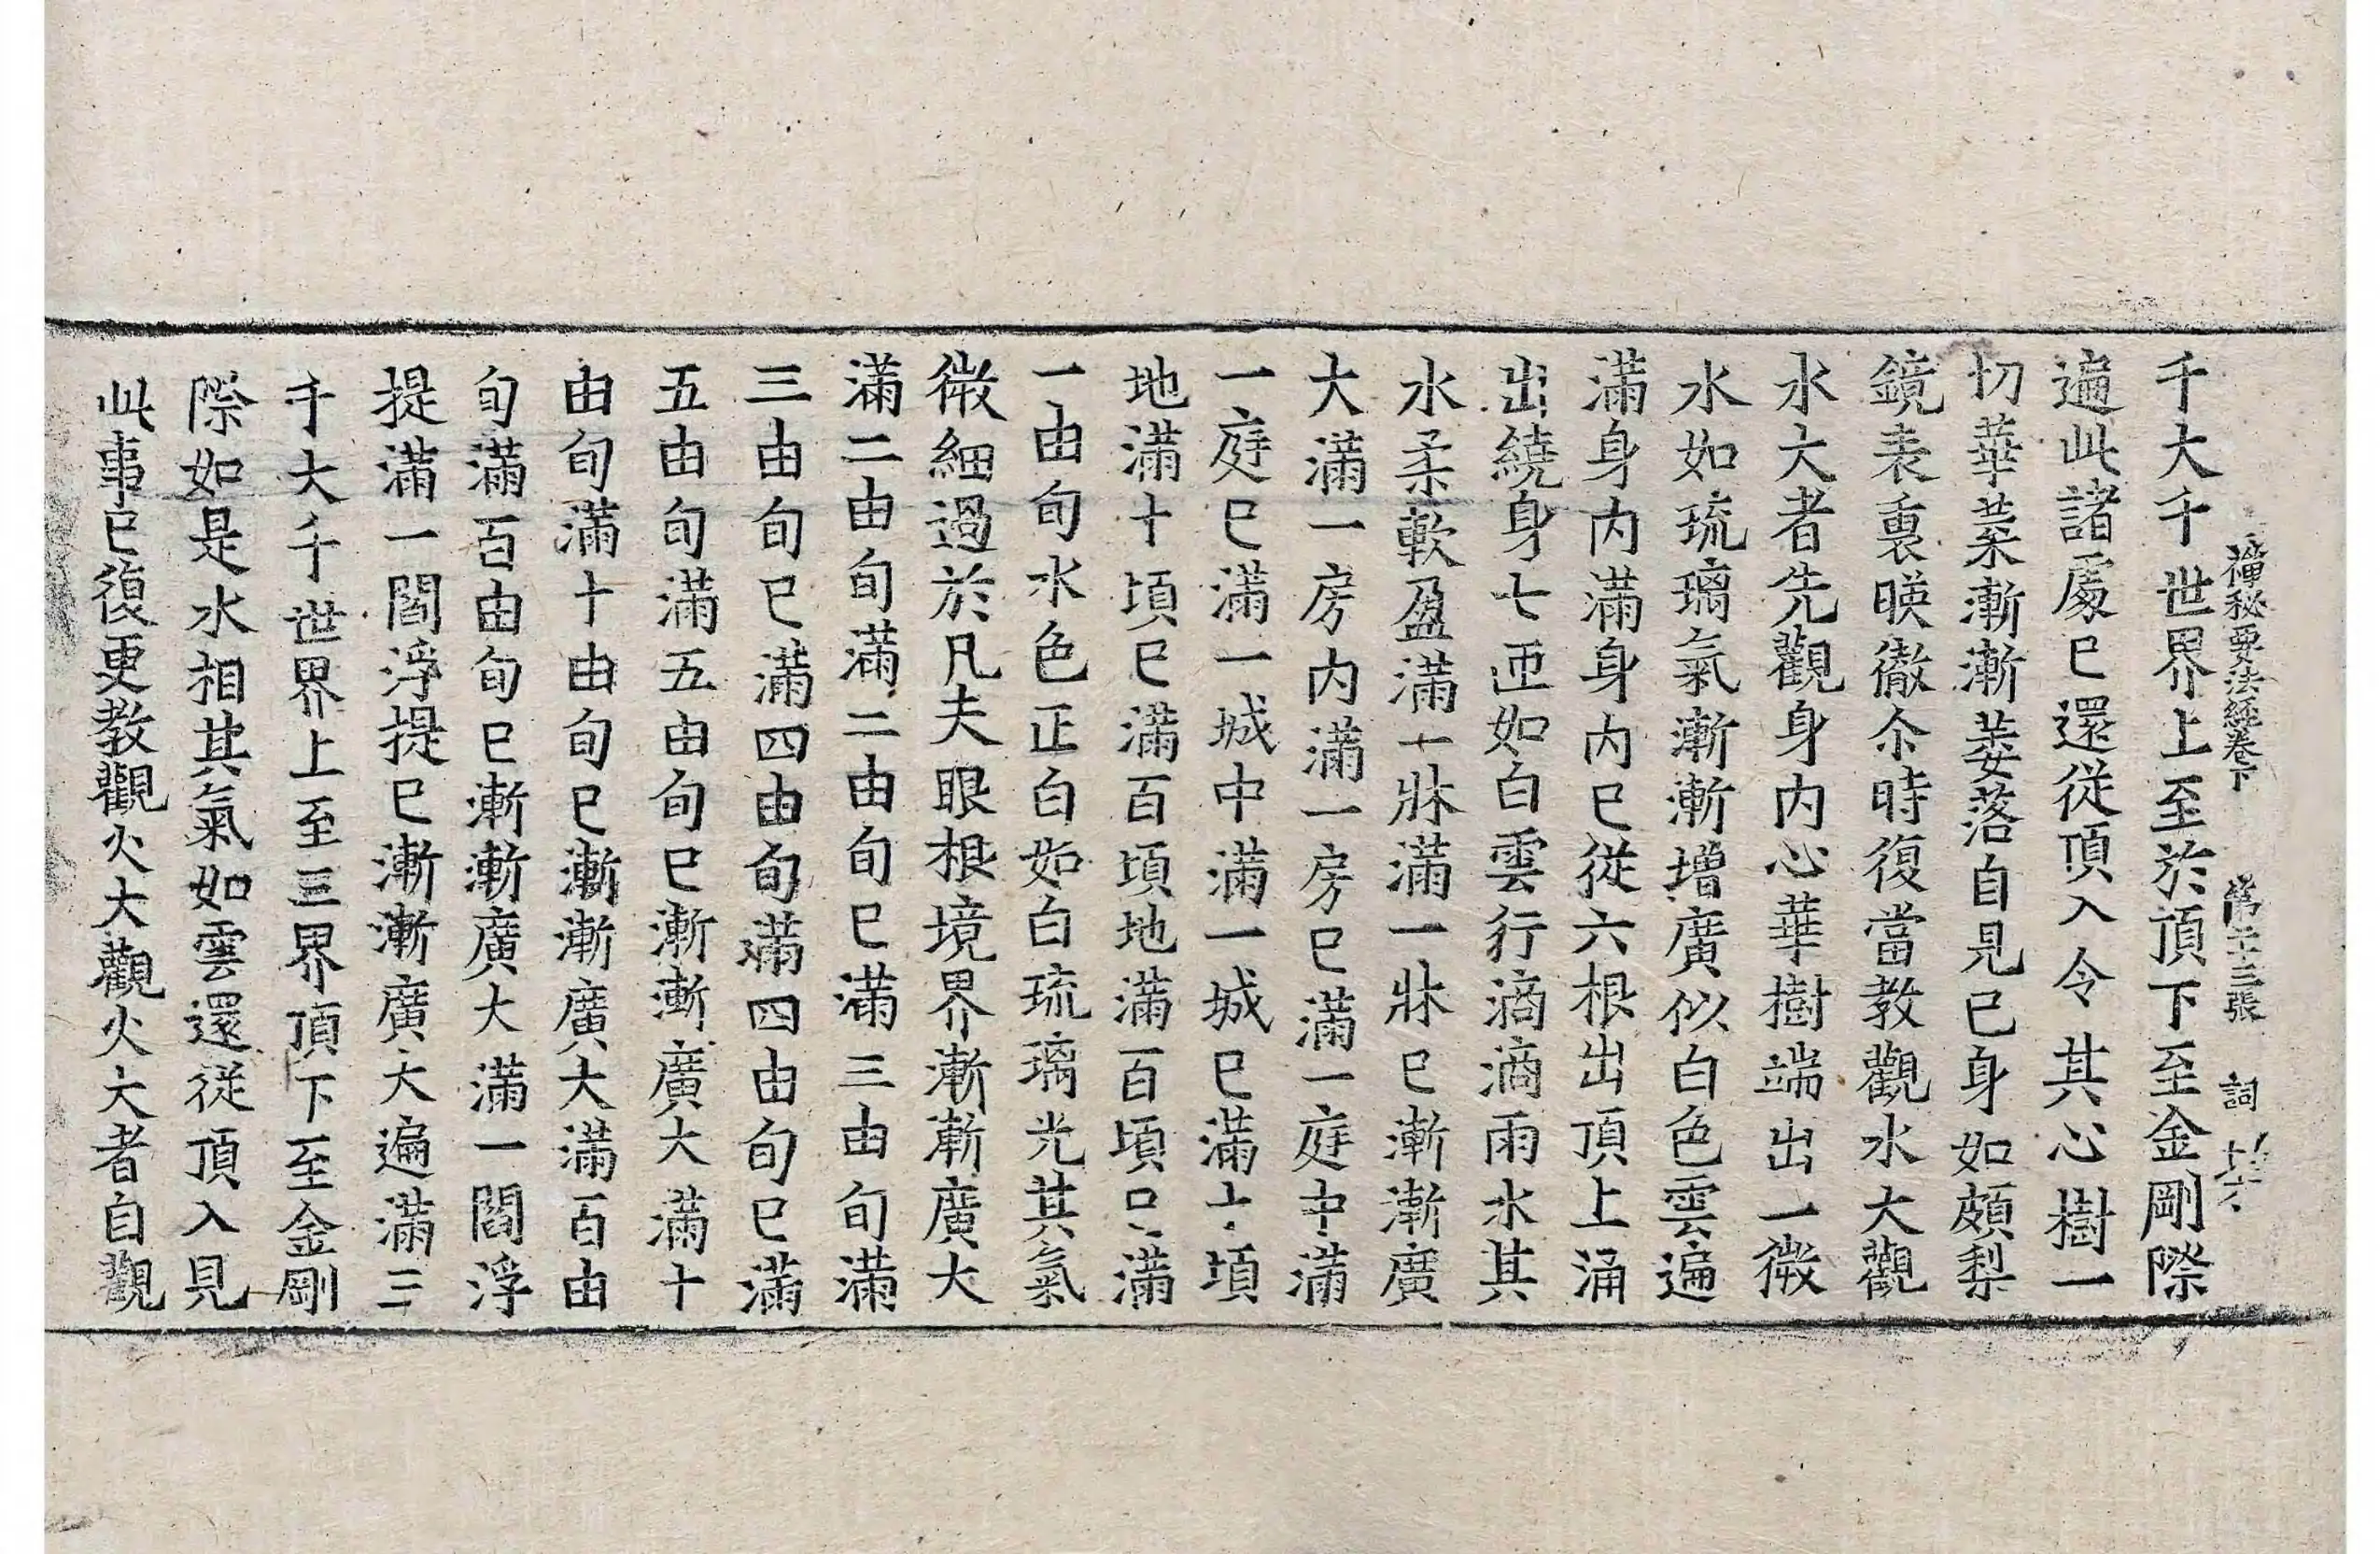 禪秘要法經卷下　第二十三張　詞
千大千世界上至於頂下至金剛際
遍此諸處已還從頂入令其心樹一
切華菓漸漸萎落自見已身如頗梨
鏡表裏暎徹尒時復當教觀水大觀
水大者先觀身內心華樹端出一微
水如琉璃氣漸漸增廣似白色雲遍
滿身內滿身內已從六根出頂上涌
出繞身七匝如白雲行滴滴雨水其
水柔軟盈滿一牀滿一牀已漸漸廣
大滿一房內滿一房已滿一庭中滿
一庭已滿一城中滿一城已滿十頃
地滿十頃已滿百頃地滿百頃已滿
一由旬水色正白如白琉璃光其氣
微細過於凡夫眼根境界漸漸廣大
滿二由旬滿二由旬已滿三由旬滿
三由旬已滿四由旬滿四由旬已滿
五由旬滿五由旬已漸漸廣大滿十
由旬滿十由旬已漸漸廣大滿百由
旬滿百由旬已漸漸廣大滿一閻浮
提滿一閻浮提已漸漸廣大遍滿三
千大千世界上至三界頂下至金剛
際如是水相其氣如雲還從頂入見
此事已復更教觀火大觀火大者自觀